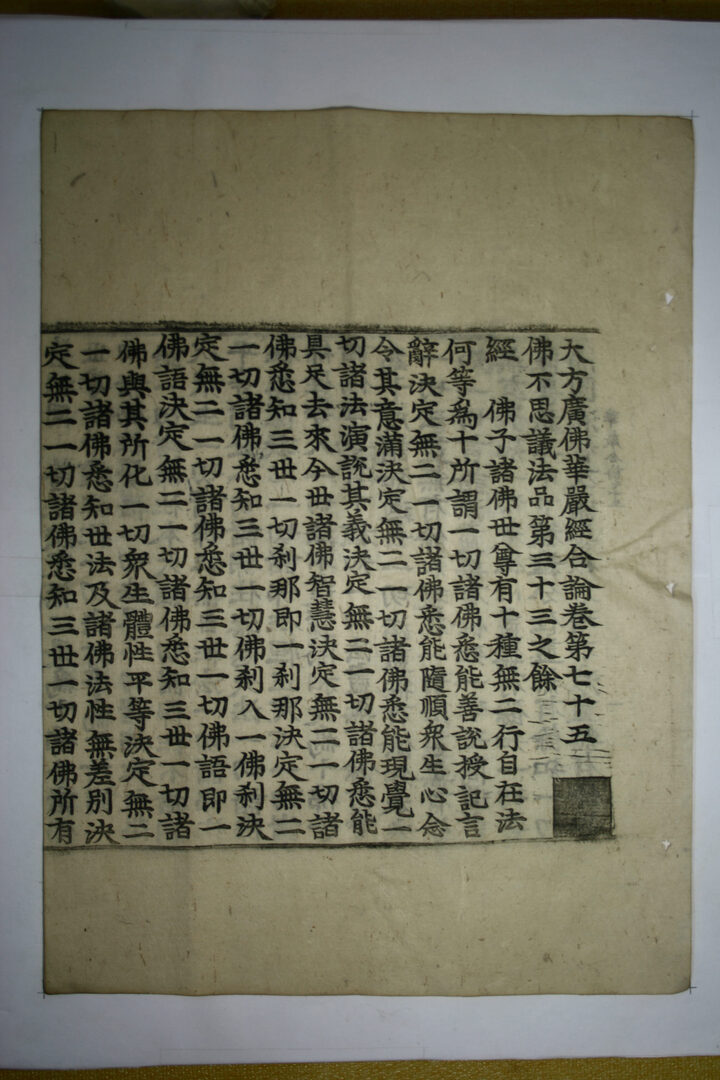 大方廣佛華嚴經合論卷第七十五
佛不思議法品第三十三之餘
經　佛子諸佛世尊有十種無二行自在法
何等爲十所謂一切諸佛悉能善說授記言
辭決定無二一切諸佛悉能隨順衆生心念
令其意滿決定無二一切諸佛悉能現覺一
切諸法演說其義決定無二一切諸佛悉能
具足去來今世諸佛智慧決定無二一切諸
佛悉知三世一切刹那即一刹那決定無二
一切諸佛悉知三世一切佛刹入一佛刹決
定無二一切諸佛悉知三世一切佛語即一
佛語決定無二一切諸佛悉知三世一切諸
佛與其所化一切衆生體性平等決定無二
一切諸佛悉知世法及諸佛法性無差別決
定無二一切諸佛悉知三世一切諸佛所有